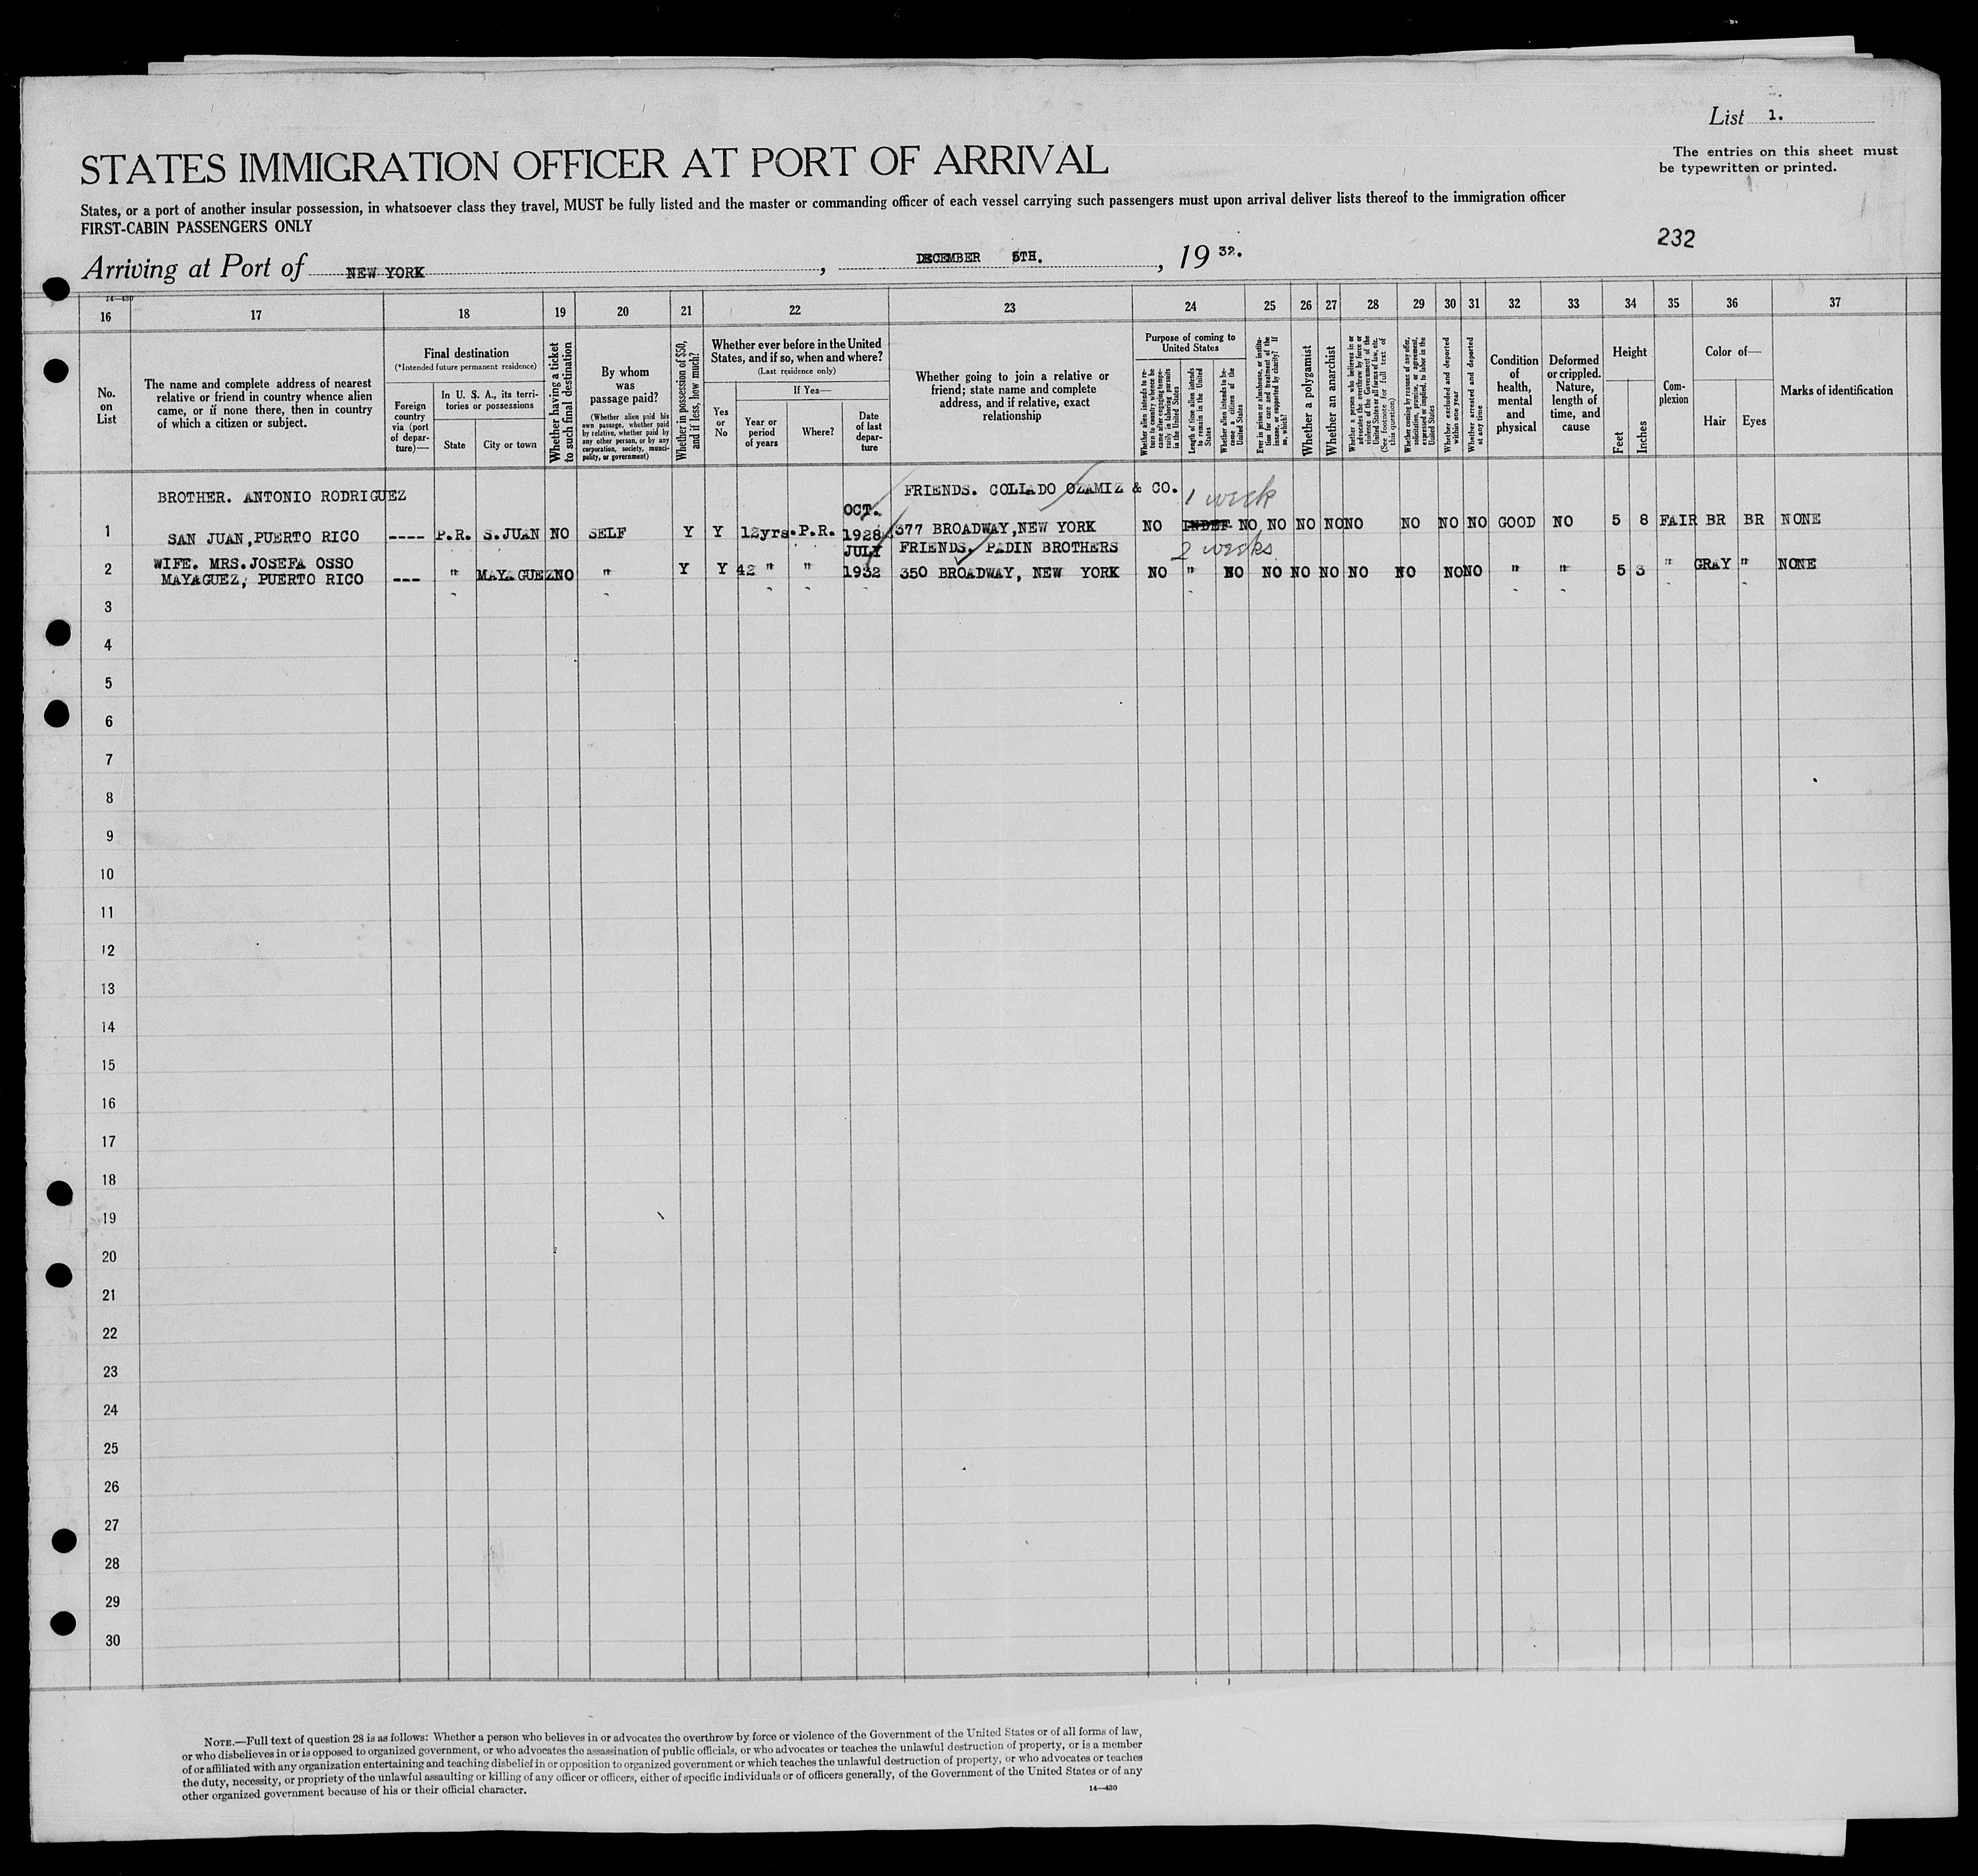 List 1.
STATES IMMIGRATION OFFICER AT PORT OF ARRIVAL
The entries on this sheet must
be typewritten or printed.
States, or a port of another insular possession, in whatsoever class they travel, MUST be fully listed and the master or commanding officer of each vessel carrying such passengers must upon arrival deliver lists thereof to the immigration officer
FIRST-CABIN PASSENGERS ONLY
232
Arriving at Port of NEW YORK, DECEMBER 5TH., 19 32.
14—430
16 17 18 19 20 21 22 23 24 25 26 27 28 29 30 31 32 33 34 35 36 37
No.
on
List
The name and complete address of nearest
relative or friend in country whence alien
came, or if none there, then in country
of which a citizen or subject.
Final destination
(*Intended future permanent residence)
Foreign
country
via (port
of depar-
ture)—
In U. S. A., its terri-
tories or possessions
State City or town
Whether having a ticket
to such final destination
By whom
was
passage paid?
(Whether alien paid his
own passage, whether paid
by relative, whether paid by
any other person, or by any
corporation, society, munici-
pality, or government)
Whether in possession of $50,
and if less, how much?
Whether ever before in the United
States, and if so, when and where?
(Last residence only)
Yes
or
No
If Yes—
Year or
period
of years
Where?
Date
of last
depar-
ture
Whether going to join a relative or
friend; state name and complete
address, and if relative, exact
relationship
Purpose of coming to
United States
Whether alien intends to re-
turn to country whence he
came after engaging tempo-
rarily in laboring pursuits
in the United States
Length of time alien intends
to remain in the United
States
Whether alien intends to be-
come a citizen of the
United States
Ever in prison or almshouse, or institu-
tion for care and treatment of the
insane, or supported by charity? If
so, which?
Whether a polygamist
Whether an anarchist
Whether a person who believes in or
advocates the overthrow by force or
violence of the Government of the
United States or all forms of law, etc.
(See footnote for full text of
this question)
Whether coming by reasons of any offer,
solicitation, promise, or agreement,
expressed or implied, to labor in the
United States
Whether excluded and deported
within one year
Whether arrested and deported
at any time
Condition
of
health,
mental
and
physical
Deformed
or crippled.
Nature,
length of
time, and
cause
Height
Feet Inches
Com-
plexion
Color of—
Hair Eyes
Marks of identification
BROTHER. ANTONIO RODRIGUEZ OCT. FRIENDS. COLLADO OZAMIZ & CO. 1 week
1 SAN JUAN, PUERTO RICO ---- P.R. S.JUAN NO SELF Y Y 12yrs. P.R. 1928 377 BROADWAY, NEW YORK NO INDEF NO NO NO NO NO NO NO NO GOOD NO 5 8 FAIR BR BR NONE
WIFE. MRS.JOSEFA OSSO JULY FRIENDS. PADIN BROTHERS 2 weeks
2 MAYAGUEZ, PUERTO RICO --- " MAYAGUEZ NO " Y Y 42 " " 1932 350 BROADWAY, NEW YORK NO " NO NO NO NO NO NO NO NO " " 5 3 " GRAY " NONE
3
4
5
6
7
8
9
10
11
12
13
14
15
16
17
18
19
20
21
22
23
24
25
26
27
28
29
30
NOTE.—Full text of question 28 is as follows: Whether a person who believes in or advocates the overthrow by force or violence of the Government of the United States or of all forms of law,
or who disbelieves in or is opposed to organized government, or who advocates the assassination of public officials, or who advocates or teaches the unlawful destruction of property, or is a member
of or affiliated with any organization entertaining and teaching disbelief in or opposition to organized government or which teaches the unlawful destruction of property, or who advocates or teaches
the duty, necessity, or propriety of the unlawful assaulting or killing of any officer or officers, either of specific individuals or of officers generally, of the Government of the United States or of any
other organized government because of his or their official character.
14—430